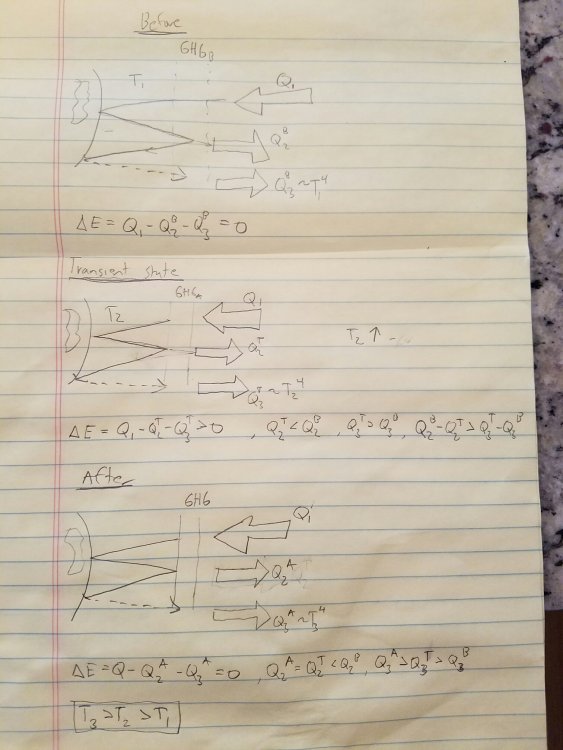 Before
GHG_B
T₁
Q₁
Q₂ᴮ
Q₃ᴮ ~ T₁⁴
ΔE = Q₁ - Q₂ᴮ - Q₃ᴮ = 0
Transient state
GHG_A
T₂
Q₁
Q₂ᵀ
T₂ ↑
Q₃ᵀ ~ T₂⁴
ΔE = Q₁ - Q₂ᵀ - Q₃ᵀ > 0 , Q₂ᵀ < Q₂ᴮ , Q₃ᵀ > Q₃ᴮ , Q₂ᴮ - Q₂ᵀ > Q₃ᵀ - Q₃ᴮ
After
GHG
Q₁
Q₂ᴬ
Q₃ᴬ ~ T₃⁴
ΔE = Q - Q₂ᴬ - Q₃ᴬ = 0 , Q₂ᴬ = Q₂ᵀ < Q₂ᴮ , Q₃ᴬ > Q₃ᵀ > Q₃ᴮ
T₃ > T₂ > T₁